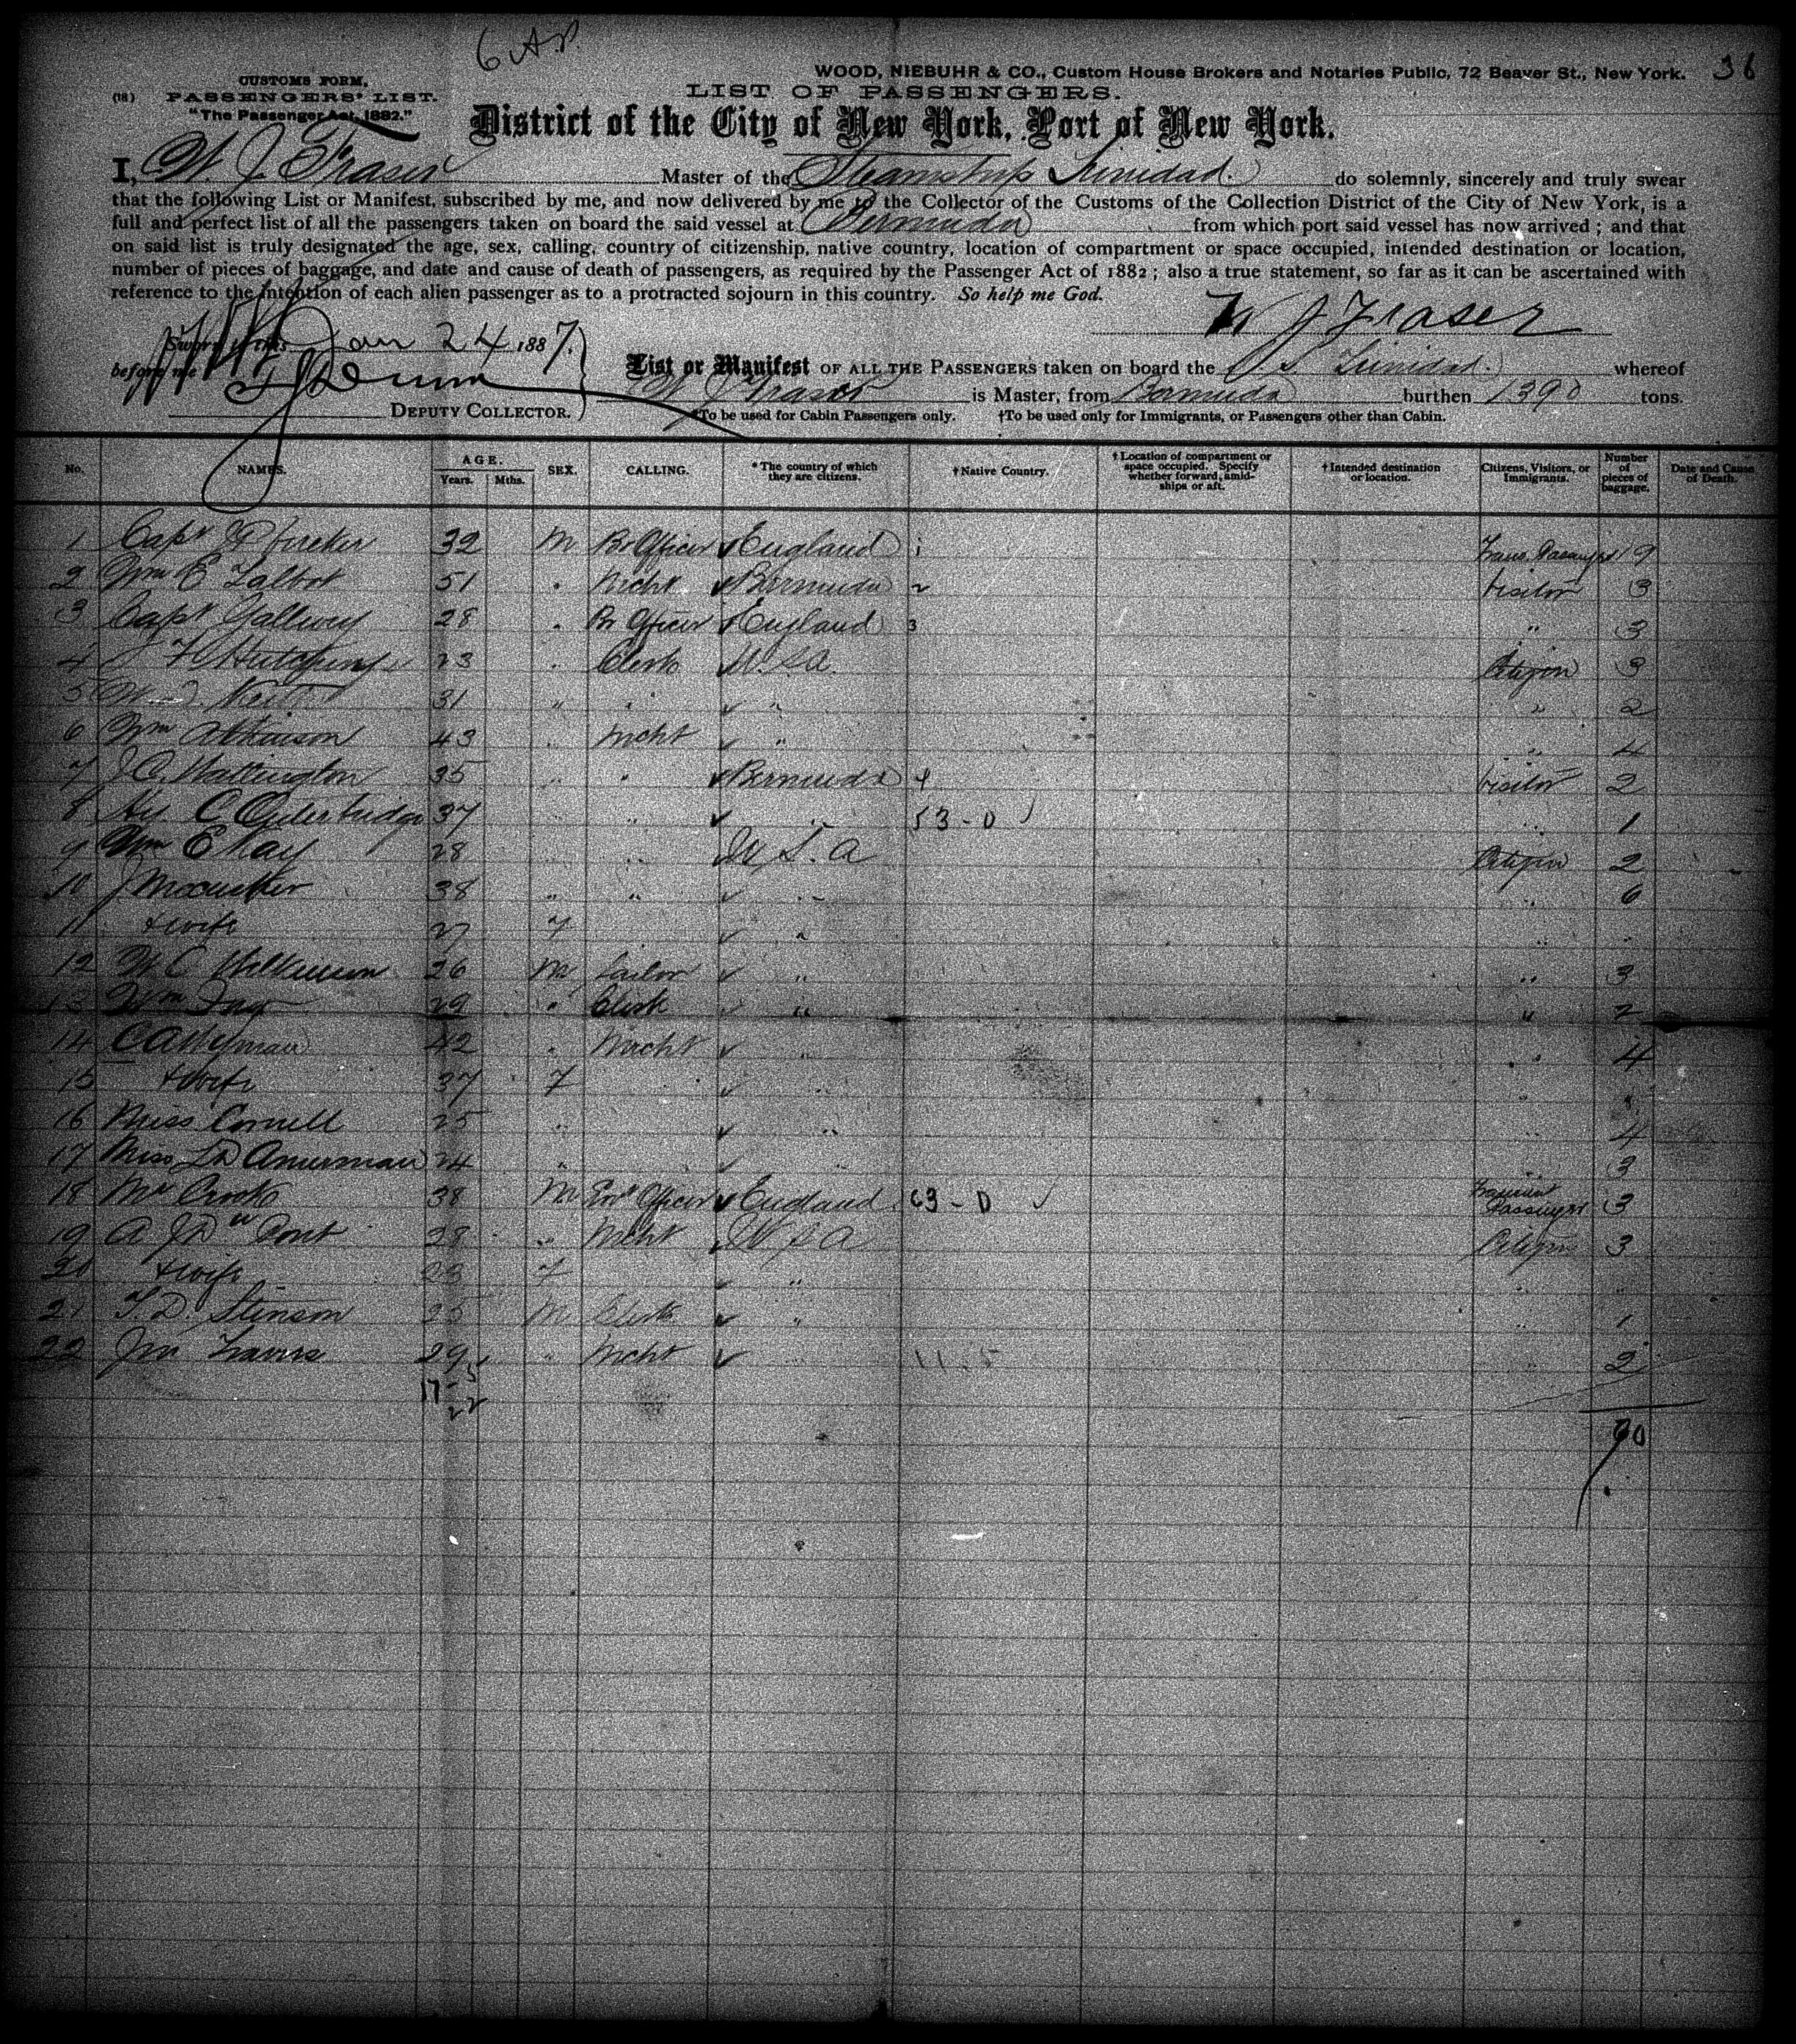 36
WOOD, NIEBUHR & CO., Custom House Brokers and Notaries Public, 72 Beaver St., New York.
CUSTOMS FORM.
(18) PASSENGERS' LIST.
"The Passenger Act, 1882."
LIST OF PASSENGERS.
District of the City of New York, Port of New York.
I, W. J. Fraser Master of the Steamship Trinidad do solemnly, sincerely and truly swear
that the following List or Manifest, subscribed by me, and now delivered by me to the Collector of the Customs of the Collection District of the City of New York, is a
full and perfect list of all the passengers taken on board the said vessel at Bermuda from which port said vessel has now arrived ; and that
on said list is truly designated the age, sex, calling, country of citizenship, native country, location of compartment or space occupied, intended destination or location,
number of pieces of baggage, and date and cause of death of passengers, as required by the Passenger Act of 1882 ; also a true statement, so far as it can be ascertained with
reference to the intention of each alien passenger as to a protracted sojourn in this country. So help me God.
W J Fraser
Sworn to this Jan 24 1887.
before me
DEPUTY COLLECTOR.
List or Manifest OF ALL THE PASSENGERS taken on board the S. S. Trinidad whereof
W J Fraser is Master, from Bermuda burthen 1390 tons.
*To be used for Cabin Passengers only. †To be used only for Immigrants, or Passengers other than Cabin.
No. NAMES. AGE. Years. Mths. SEX. CALLING. *The country of which they are citizens. †Native Country. †Location of compartment or space occupied. Specify whether forward, amidships or aft. †Intended destination or location. Citizens, Visitors, or Immigrants. Number of pieces of baggage. Date and Cause of Death.
1 Capt Tucker 32 M Br Officer England 1 Trans. Passenger 19
2 Wm E Talbot 51 " Mcht Bermuda 2 Visitor 3
3 Capt Gallwey 28 " Br Officer England 3 " 3
4 J H Hutchings 23 " Clerk U.S.A. Citizen 3
5 31 " " " " 2
6 Wm Atkinson 43 " Mcht " " 4
7 J C Watlington 35 " " Bermuda 4 Visitor 2
8 C Outerbridge 37 " " 53-0 " 1
9 Wm E Kay 28 " U.S.A Citizen 2
10 J 38 " " " " 6
11 & wife 27 F " " "
12 W C Wilkinson 26 M Sailor " " 3
13 Wm 29 " Clerk " " 2
14 C A Wyman 42 " Mercht " " 4
15 & Wife 37 F " "
16 Miss Cornell 25 " " " 4
17 Miss Amerman 24 " " " 3
18 Mr Crooks 38 M Officer England 63-0 Transient Passenger 3
19 A J Du Pont 28 " Mcht U S A Citizen 3
20 & wife 23 F " " "
21 T. D. Stinson 25 M Clerk " " 1
22 Jno Travis 29 " Mcht " 11.5 " 2
17-5
22
70